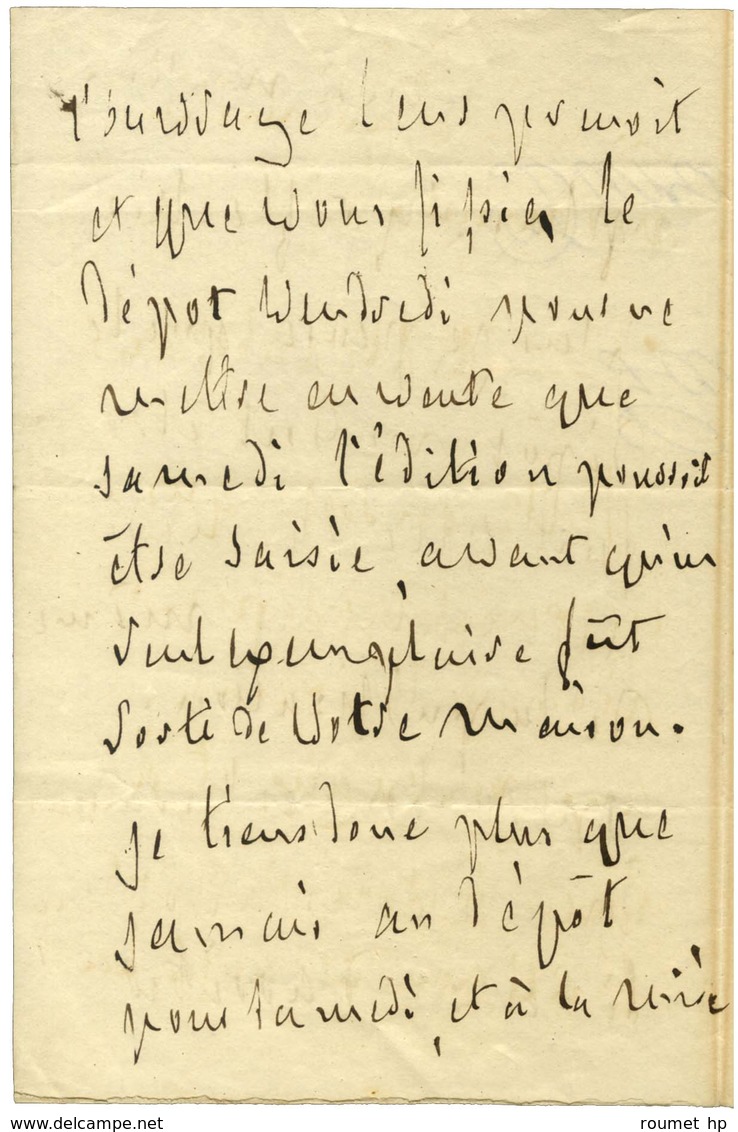 l'ouvrage leur paroit
et que vous fissiez le
dépot vendredi pour ne
mettre en vente que
samedi l'édition pourroit
être saisie, avant qu'un
seul exemplaire fût
sorti de votre maison.
je tiens donc plus que
jamais au dépôt
pour samedi, et à la mise
roumet hp
www.delcampe.net